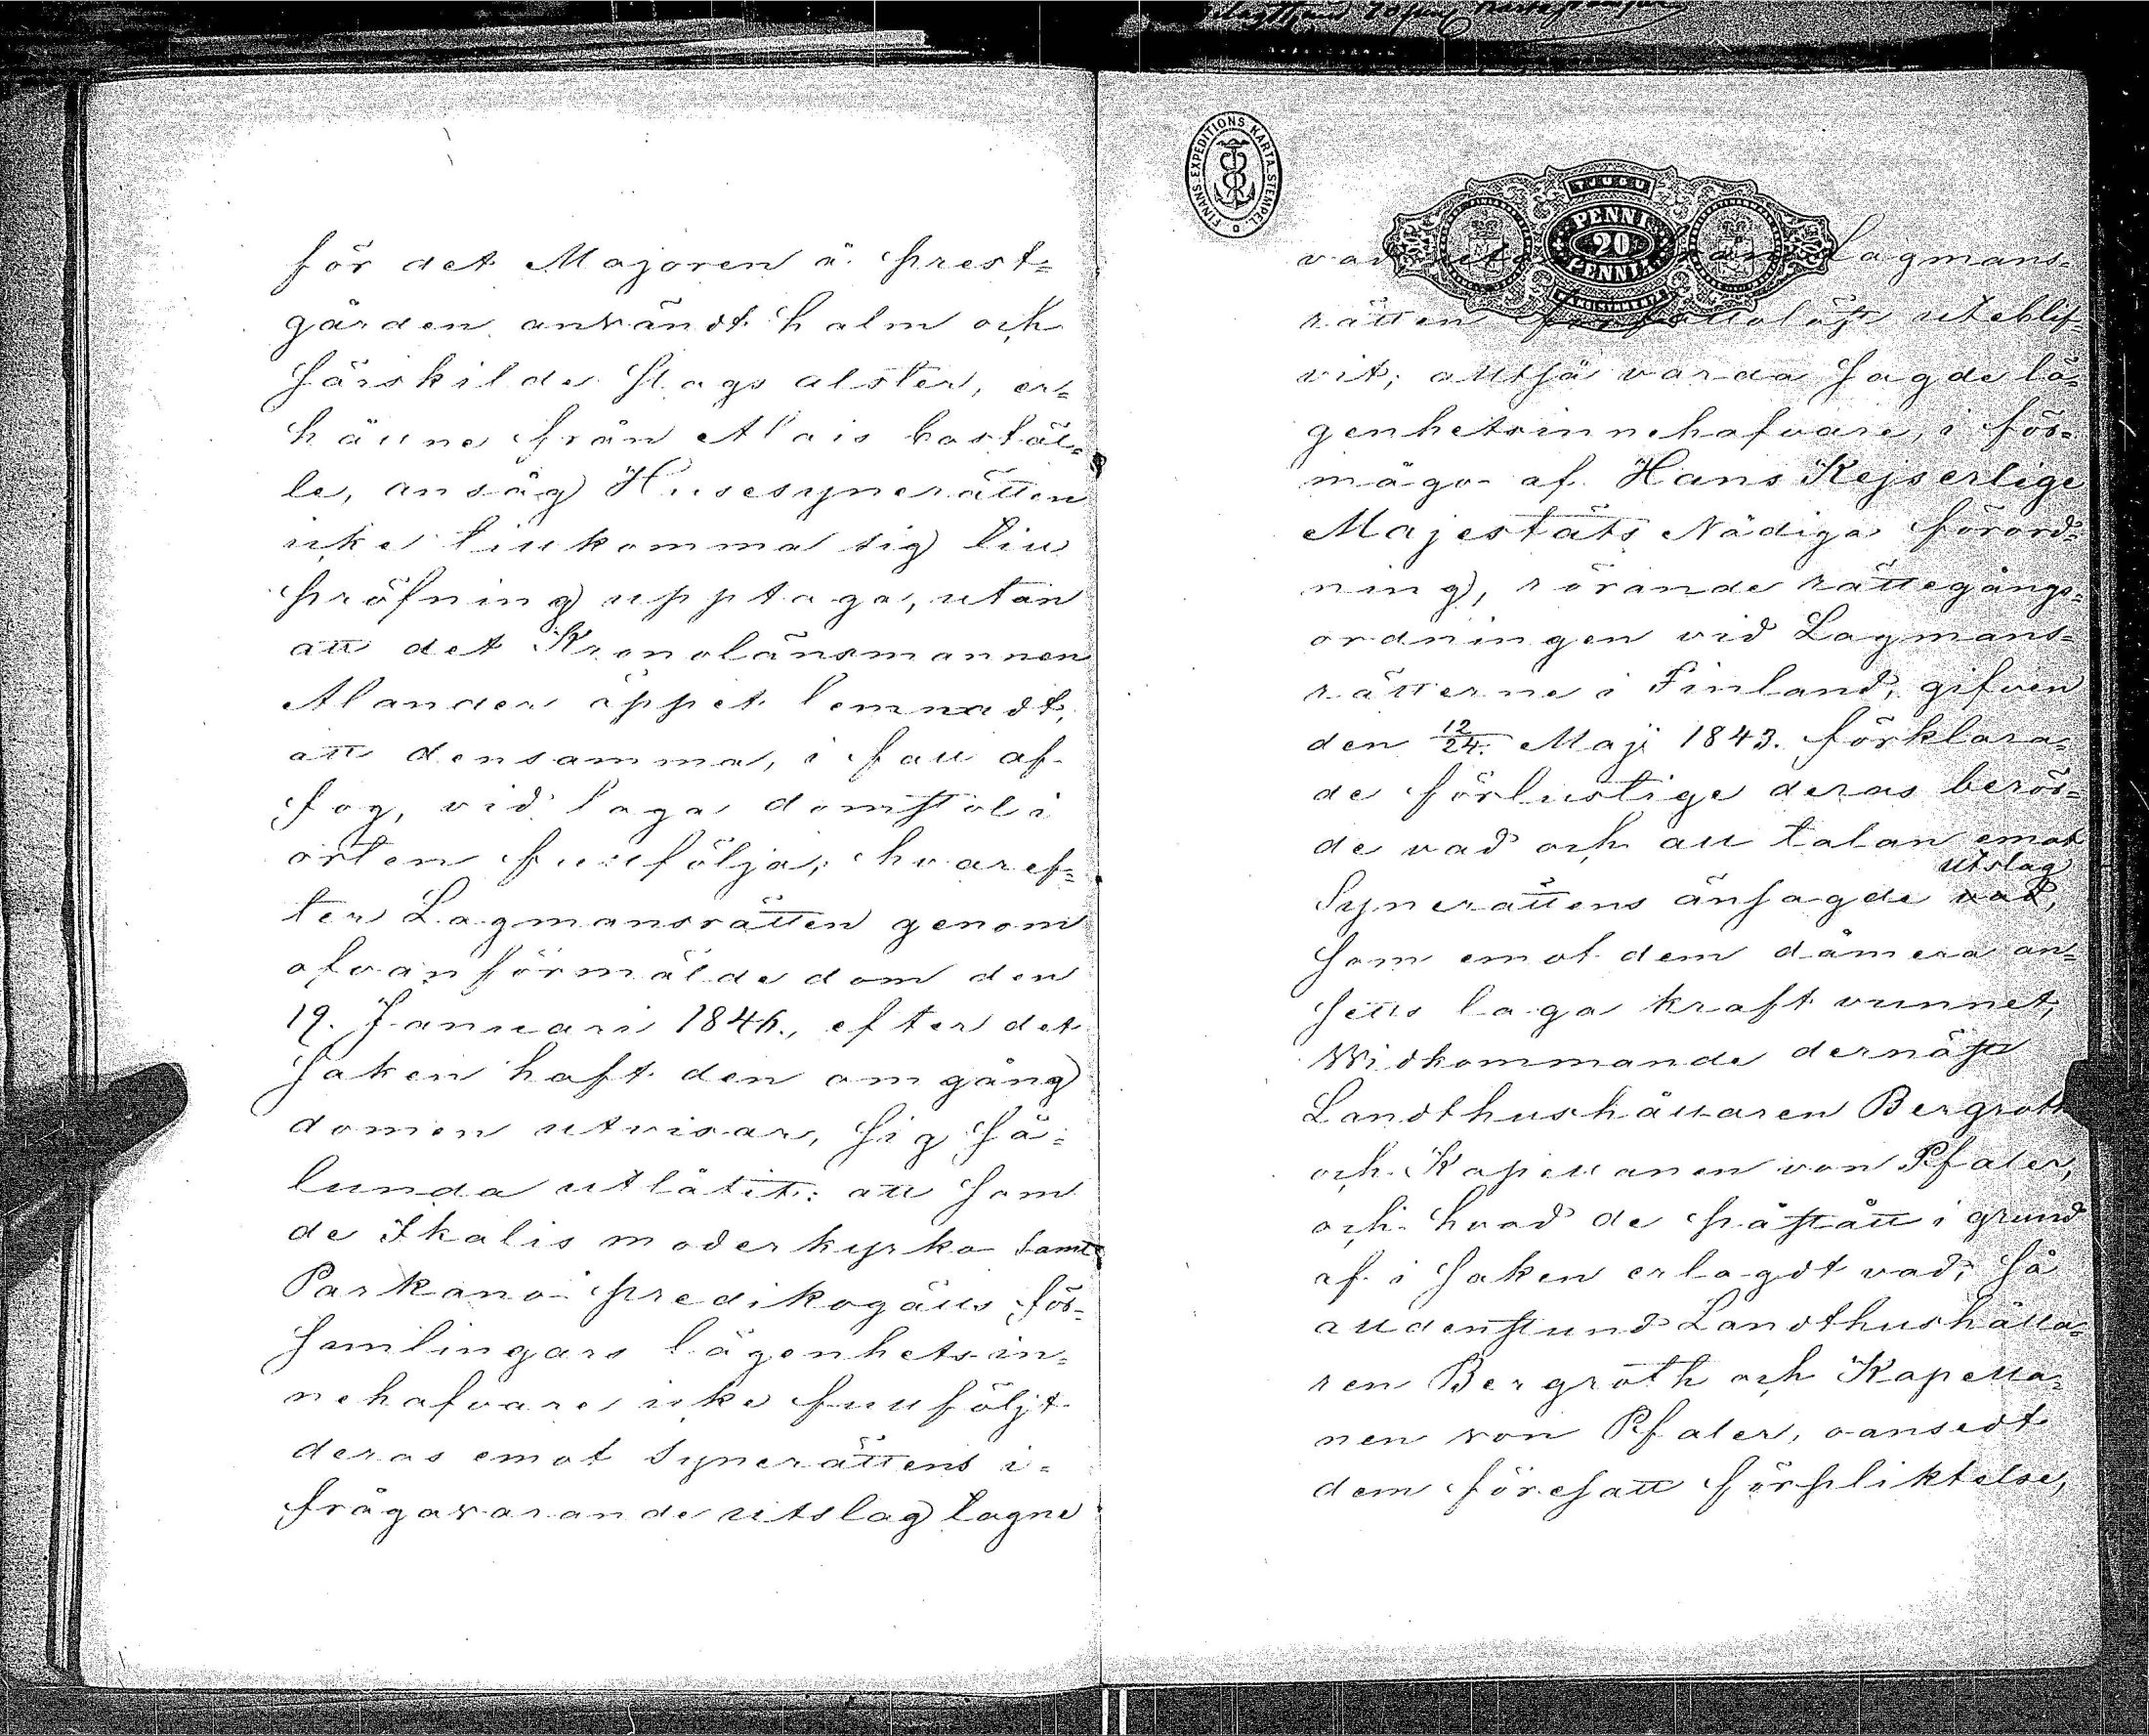 för det Majoren å prest=
gården användt halm och
särskilde slags alster, er=
hålla från Alais bostäl=
le, ansåg Husesynerätten
icke tillkomma sig till
pröfning upptaga, utan
att det Kronolänsmannen
Alander öppet lemnadt,
att densamma, i fall af
fog, vid laga domstol i
orten fullfölja; hvaref=
ter Lagmansrätten genom
ofvanförmälde dom den
19. Januari 1846., efter det
saken haft den omgång
domen utvisar, sig så=
lunda utlåtit: att som
de Ikalis moderkyrko samt
Parkano predikogälls för=
samlingars lägenhetsin=
nehafvare icke fullföljt
deras emot Synerättens i=
frågavarande utslag tagne
FINANS. EXPEDITIONS. KARTA. STEMPEL.
TJUGU
PENNI
20
PENNIÄ
vad Lagmans=
rätten förfallolöst uteblif=
vit; alltså varda sagde lä=
genhetsinnehafvare, i för=
mågo af Hans Kejserlige
Majestäts Nådiga förord=
ning, rörande rättegångs=
ordningen vid Lagmans=
rätterne i Finland, gifven
den 12/24. Maji 1843. förklara=
de förlustige deras berör=
de vad och all talan emot
utslag
Synerättens ånsagde vad,
som emot dem dåmera an=
setts laga kraft vunnet,
Widkommande dernäst
Landthushållaren Bergroth
och Kapellanen von Pfaler,
och hvad de påstått i grund
af i saken erlagdt vad; så
alldenstund Landthushålla=
ren Bergroth och Kapella=
nen von Pfaler, oansedt
dem föresatt förpliktelse,